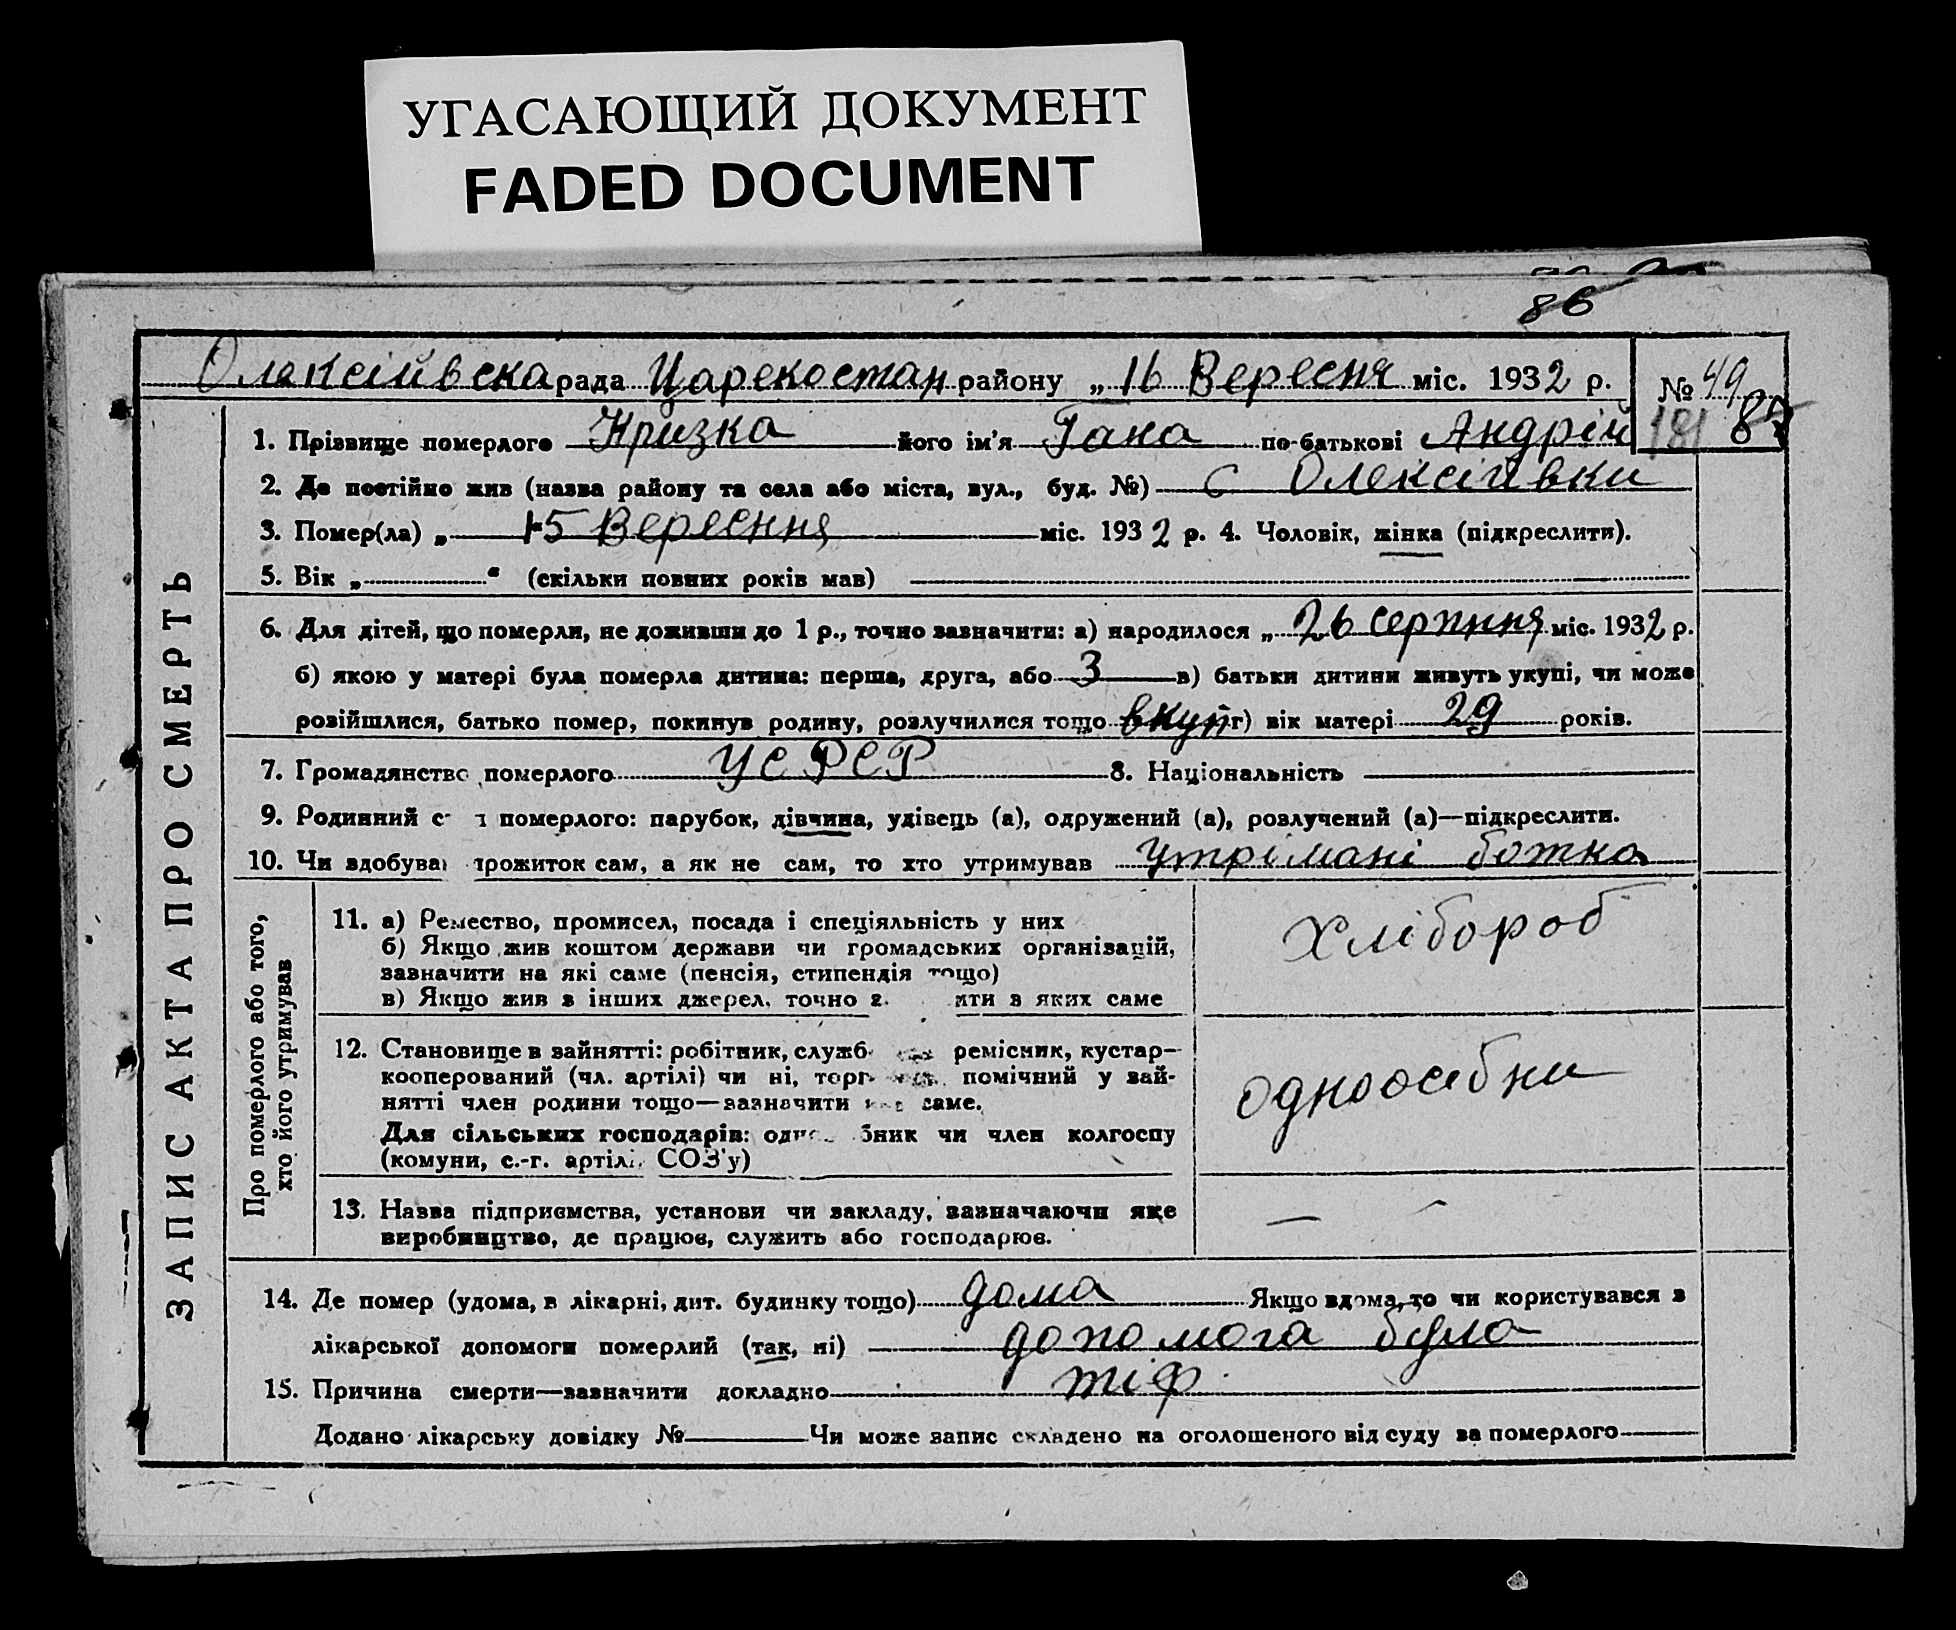 УГАСАЮЩИЙ ДОКУМЕНТ
FADED DOCUMENT
86
Олексійвска рада Царекостан району „16 Вересня міс. 1932 р.
№ 49
181 87
ЗАПИС АКТА ПРО СМЕРТЬ
1. Прізвище померлого Кризка його ім'я Гана по-батькові Андрій
2. Де постійно жив (назва району та села або міста, вул., буд. №) с Олексійвки
3. Помер(ла) „ 15 Вересння міс. 1932 р. 4. Чоловік, жінка (підкреслити).
5. Вік „ “ (скільки повних років мав)
6. Для дітей, що померли, не доживши до 1 р., точно зазначити: а) народилося „ 26 серпння міс. 1932 р.
б) якою у матері була померла дитина: перша, друга, або 3 в) батьки дитини живуть укупі, чи може
розійшлися, батько помер, покинув родину, розлучилися тощо вкупі г) вік матері 29 років.
7. Громадянство померлого УСРСР 8. Національність
9. Родинний с н померлого: парубок, дівчина, удівець (а), одружений (а), розлучений (а)—підкреслити.
10. Чи здобував прожиток сам, а як не сам, то хто утримував утрімані ботка
Про померлого або того,
хто його утримував
11. а) Ремество, промисел, посада і спеціяльність у них
б) Якщо жив коштом держави чи громадських організацій,
зазначити на які саме (пенсія, стипендія тощо)
в) Якщо жив з інших джерел, точно з ити з яких саме
хлібороб
12. Становище в зайнятті: робітник, служб ремісник, кустар—
кооперований (чл. артілі) чи ні, торг помічний у зай-
нятті член родини тощо—зазначити саме.
Для сільських господарів: одно бник чи член колгоспу
(комуни, с.-г. артілі, СОЗ'у)
одноосібни
13. Назва підприємства, установи чи закладу, зазначаючи яке
виробництво, де працює, служить або господарює.
— —
14. Де помер (удома, в лікарні, дит. будинку тощо) дома Якщо вдома, то чи користувався з
лікарської допомоги померлий (так, ні) допомога була
15. Причина смерти—зазначити докладно тіф
Додано лікарську довідку № Чи може запис складено на оголошеного від суду за померлого